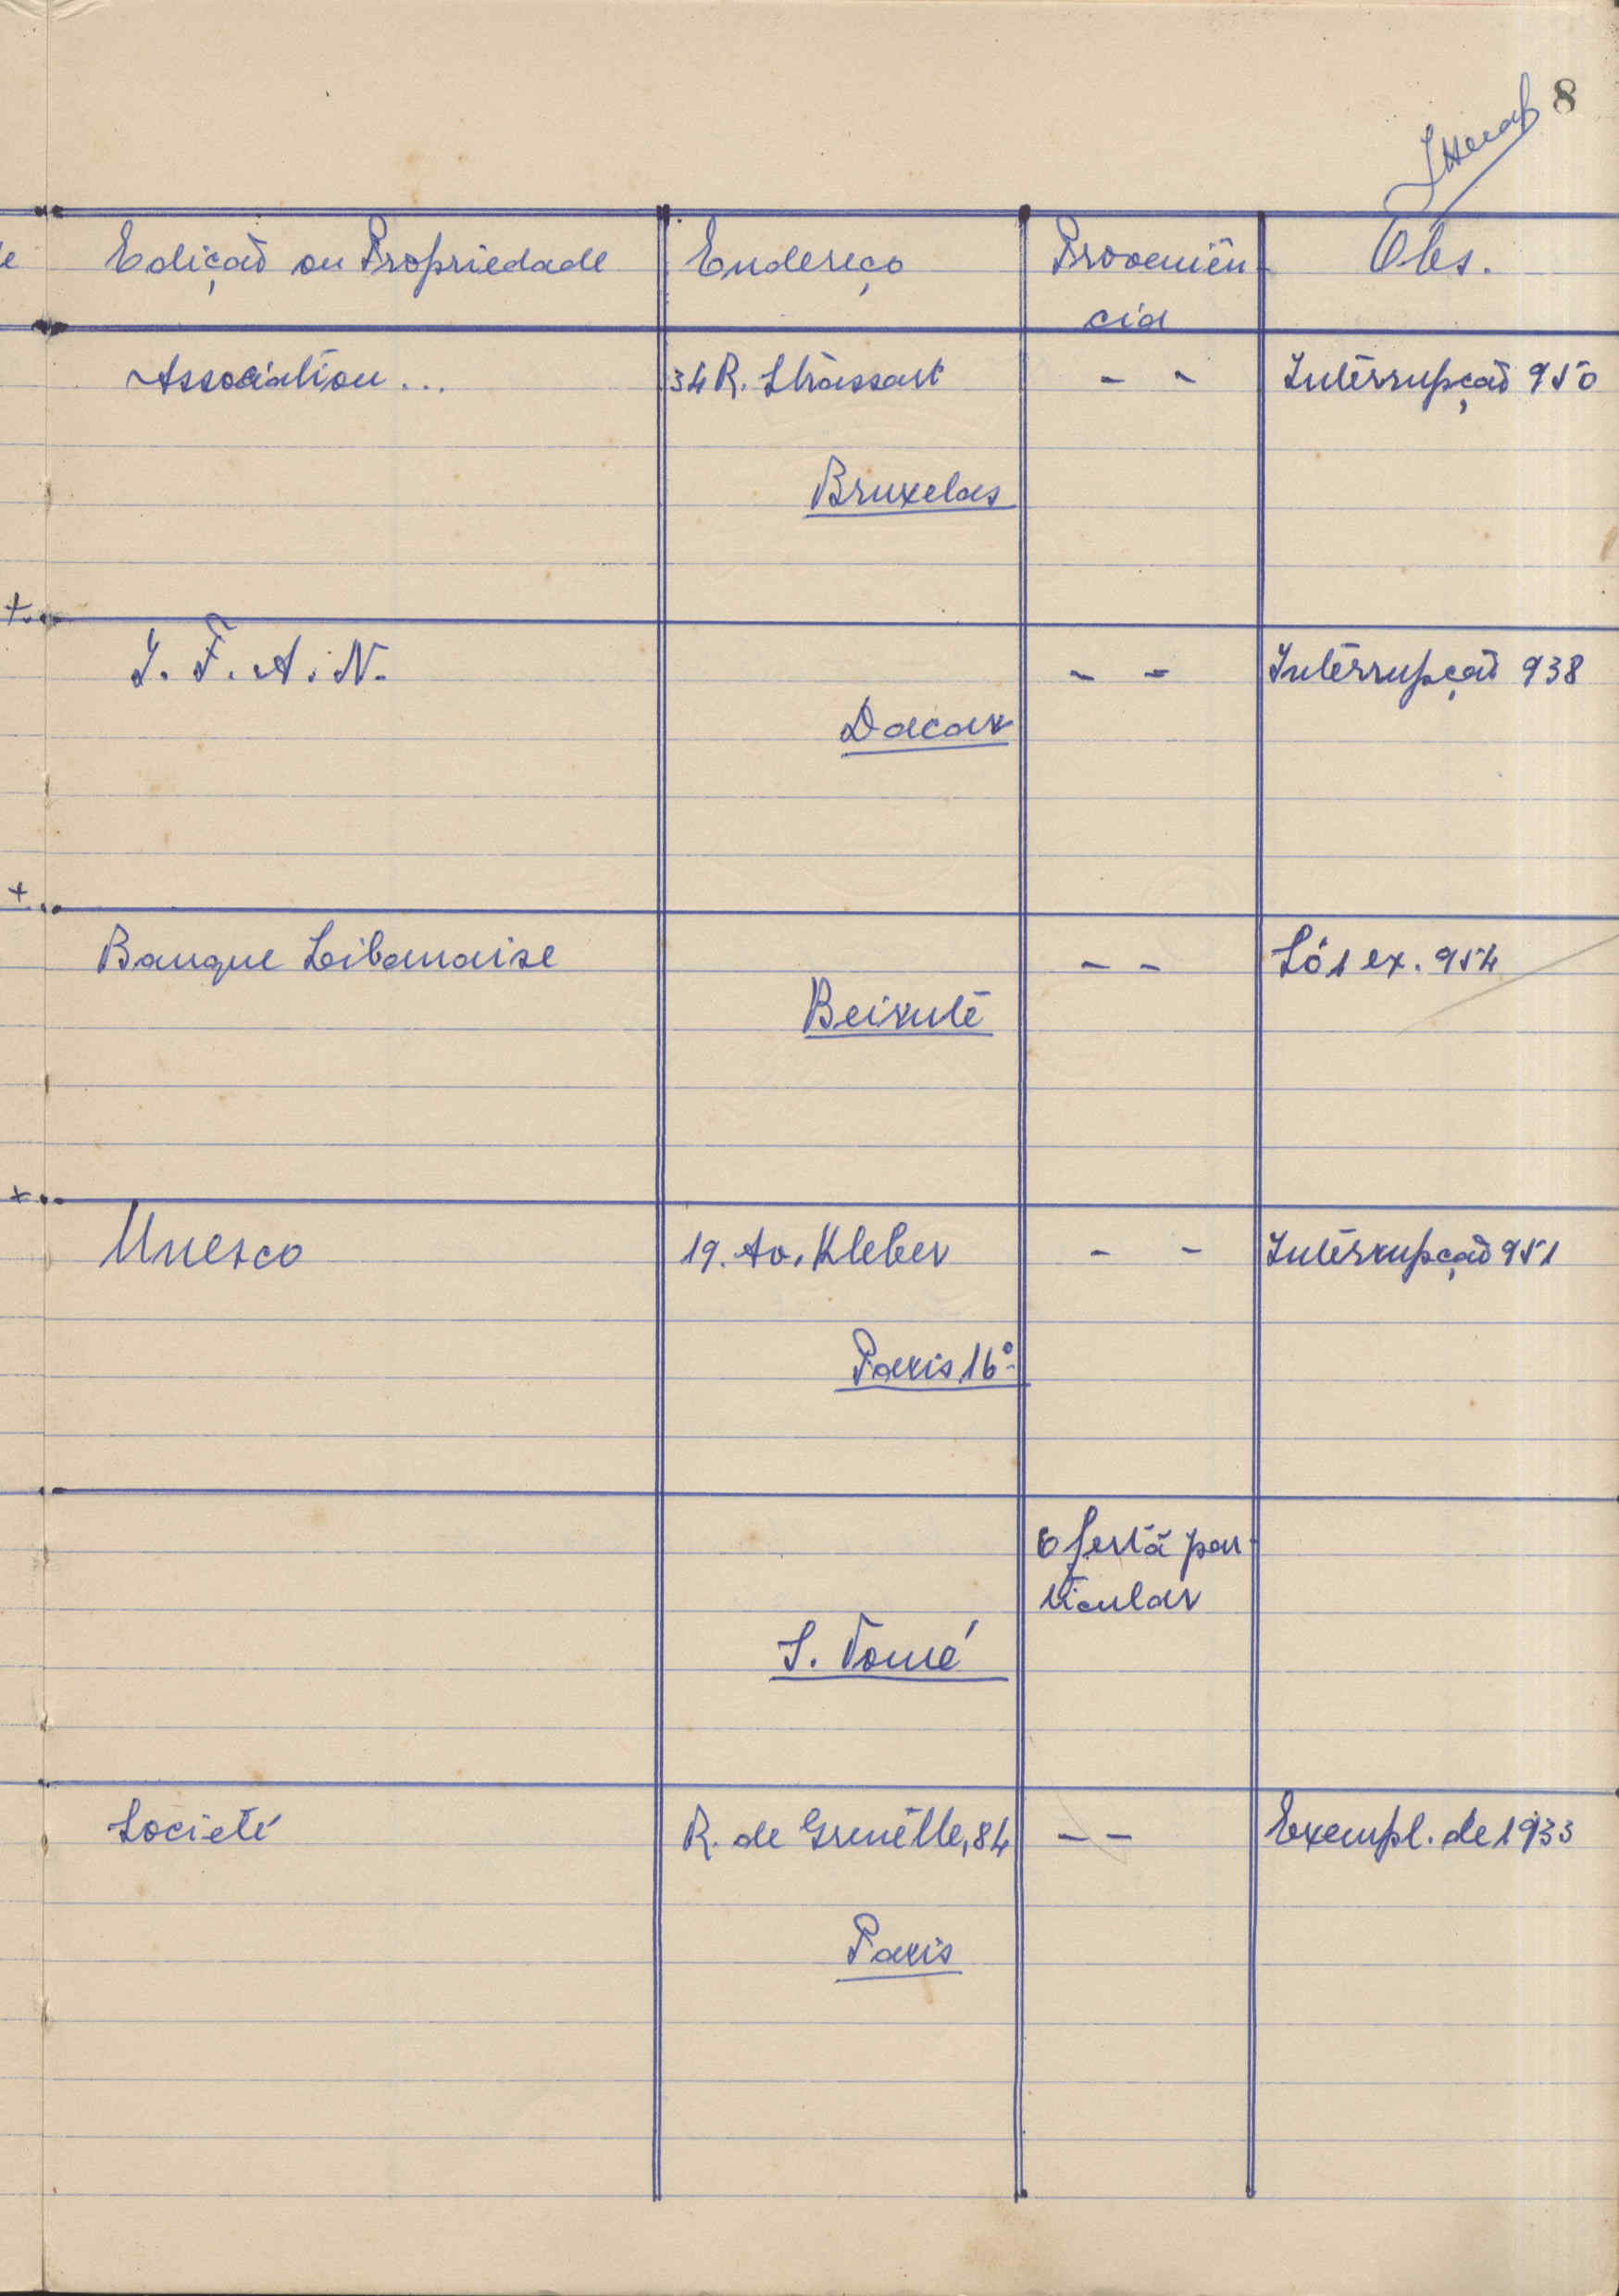 8
e Edição ou Propriedade Endereço Proveniên- Obs.
cia
Association... 34 R. Strassart - - Interrupção 950
Bruxelas
+
I. F. A. N. - - Interrupção 938
Dacar
+
Banque Libanaise - - Só 1 ex. 954
Beirute
+
Unesco 19. Av. Kleber - - Interrupção 951
Paris 16º
Oferta par-
ticular
S. Tomé
Societé R. de Grenelle, 84 - - Exempl. de 1933
Paris